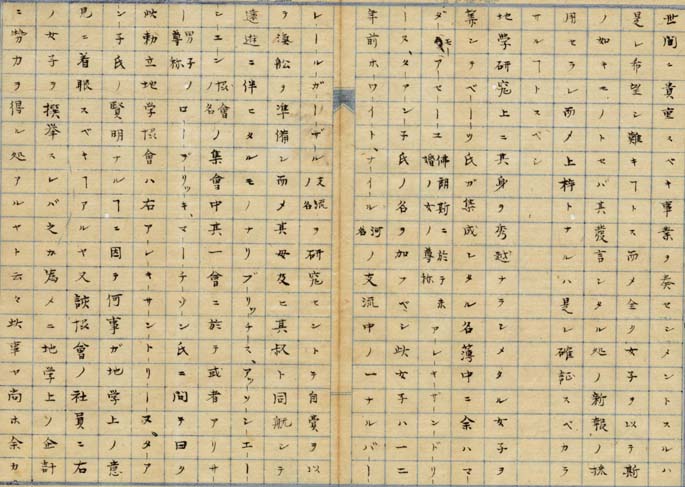 世間ニ貴重スベキ事業ヲ奏セシメントスルハ
是レ希望シ難キヿトス而メ全リ女子ヲ以テ斯
ノ如キモノトセバ其發言シタル処ノ新報ノ採
用セラレ而メ上梓トナルハ是レ確証スベカラ
サルヿトスベシ
地学研究上ニ其身ヲ秀越ナラシメタル女子ヲ
氏ガ集成シタル名簿中ニ余ハマー
佛朗斯ニ於テ未婚ノ女ノ尊称 アレキサンドリー
ース、タアンシ子氏ノ名ヲ加フベシ此女子ハ一二
年前ホワイト、ナイール 河名 ノ支流中ノ一ナルバー
レールガーザル 支流ノ名 ヲ研究セントテ自費ヲ以
ヲ滊船ヲ準備シ而メ其母及ヒ其叔ト同航シテ
遠遊ニ伴ヒタルモノナリブリッチース、アッソシエー
シエン 協會ノ名 ノ集會中其一會ニ於テ或者アリサ
ー 男子ノ尊称 ローデリッキ、マーチソン氏ニ問テ曰ク
此勅立地学協會ハ右アレキサントリース、タア
ンシ子氏ノ賢明ナルヿニ因ヲ何事ガ地学上ノ意
見ニ着眼スベキヿアルヤ又該協會ノ社員ニ右
ノ女子ヲ撰挙スレバ之カ爲メニ地学上ノ企計
ニ勢力ヲ得ル処アルヤト云々此事ヤ尚ホ余カ